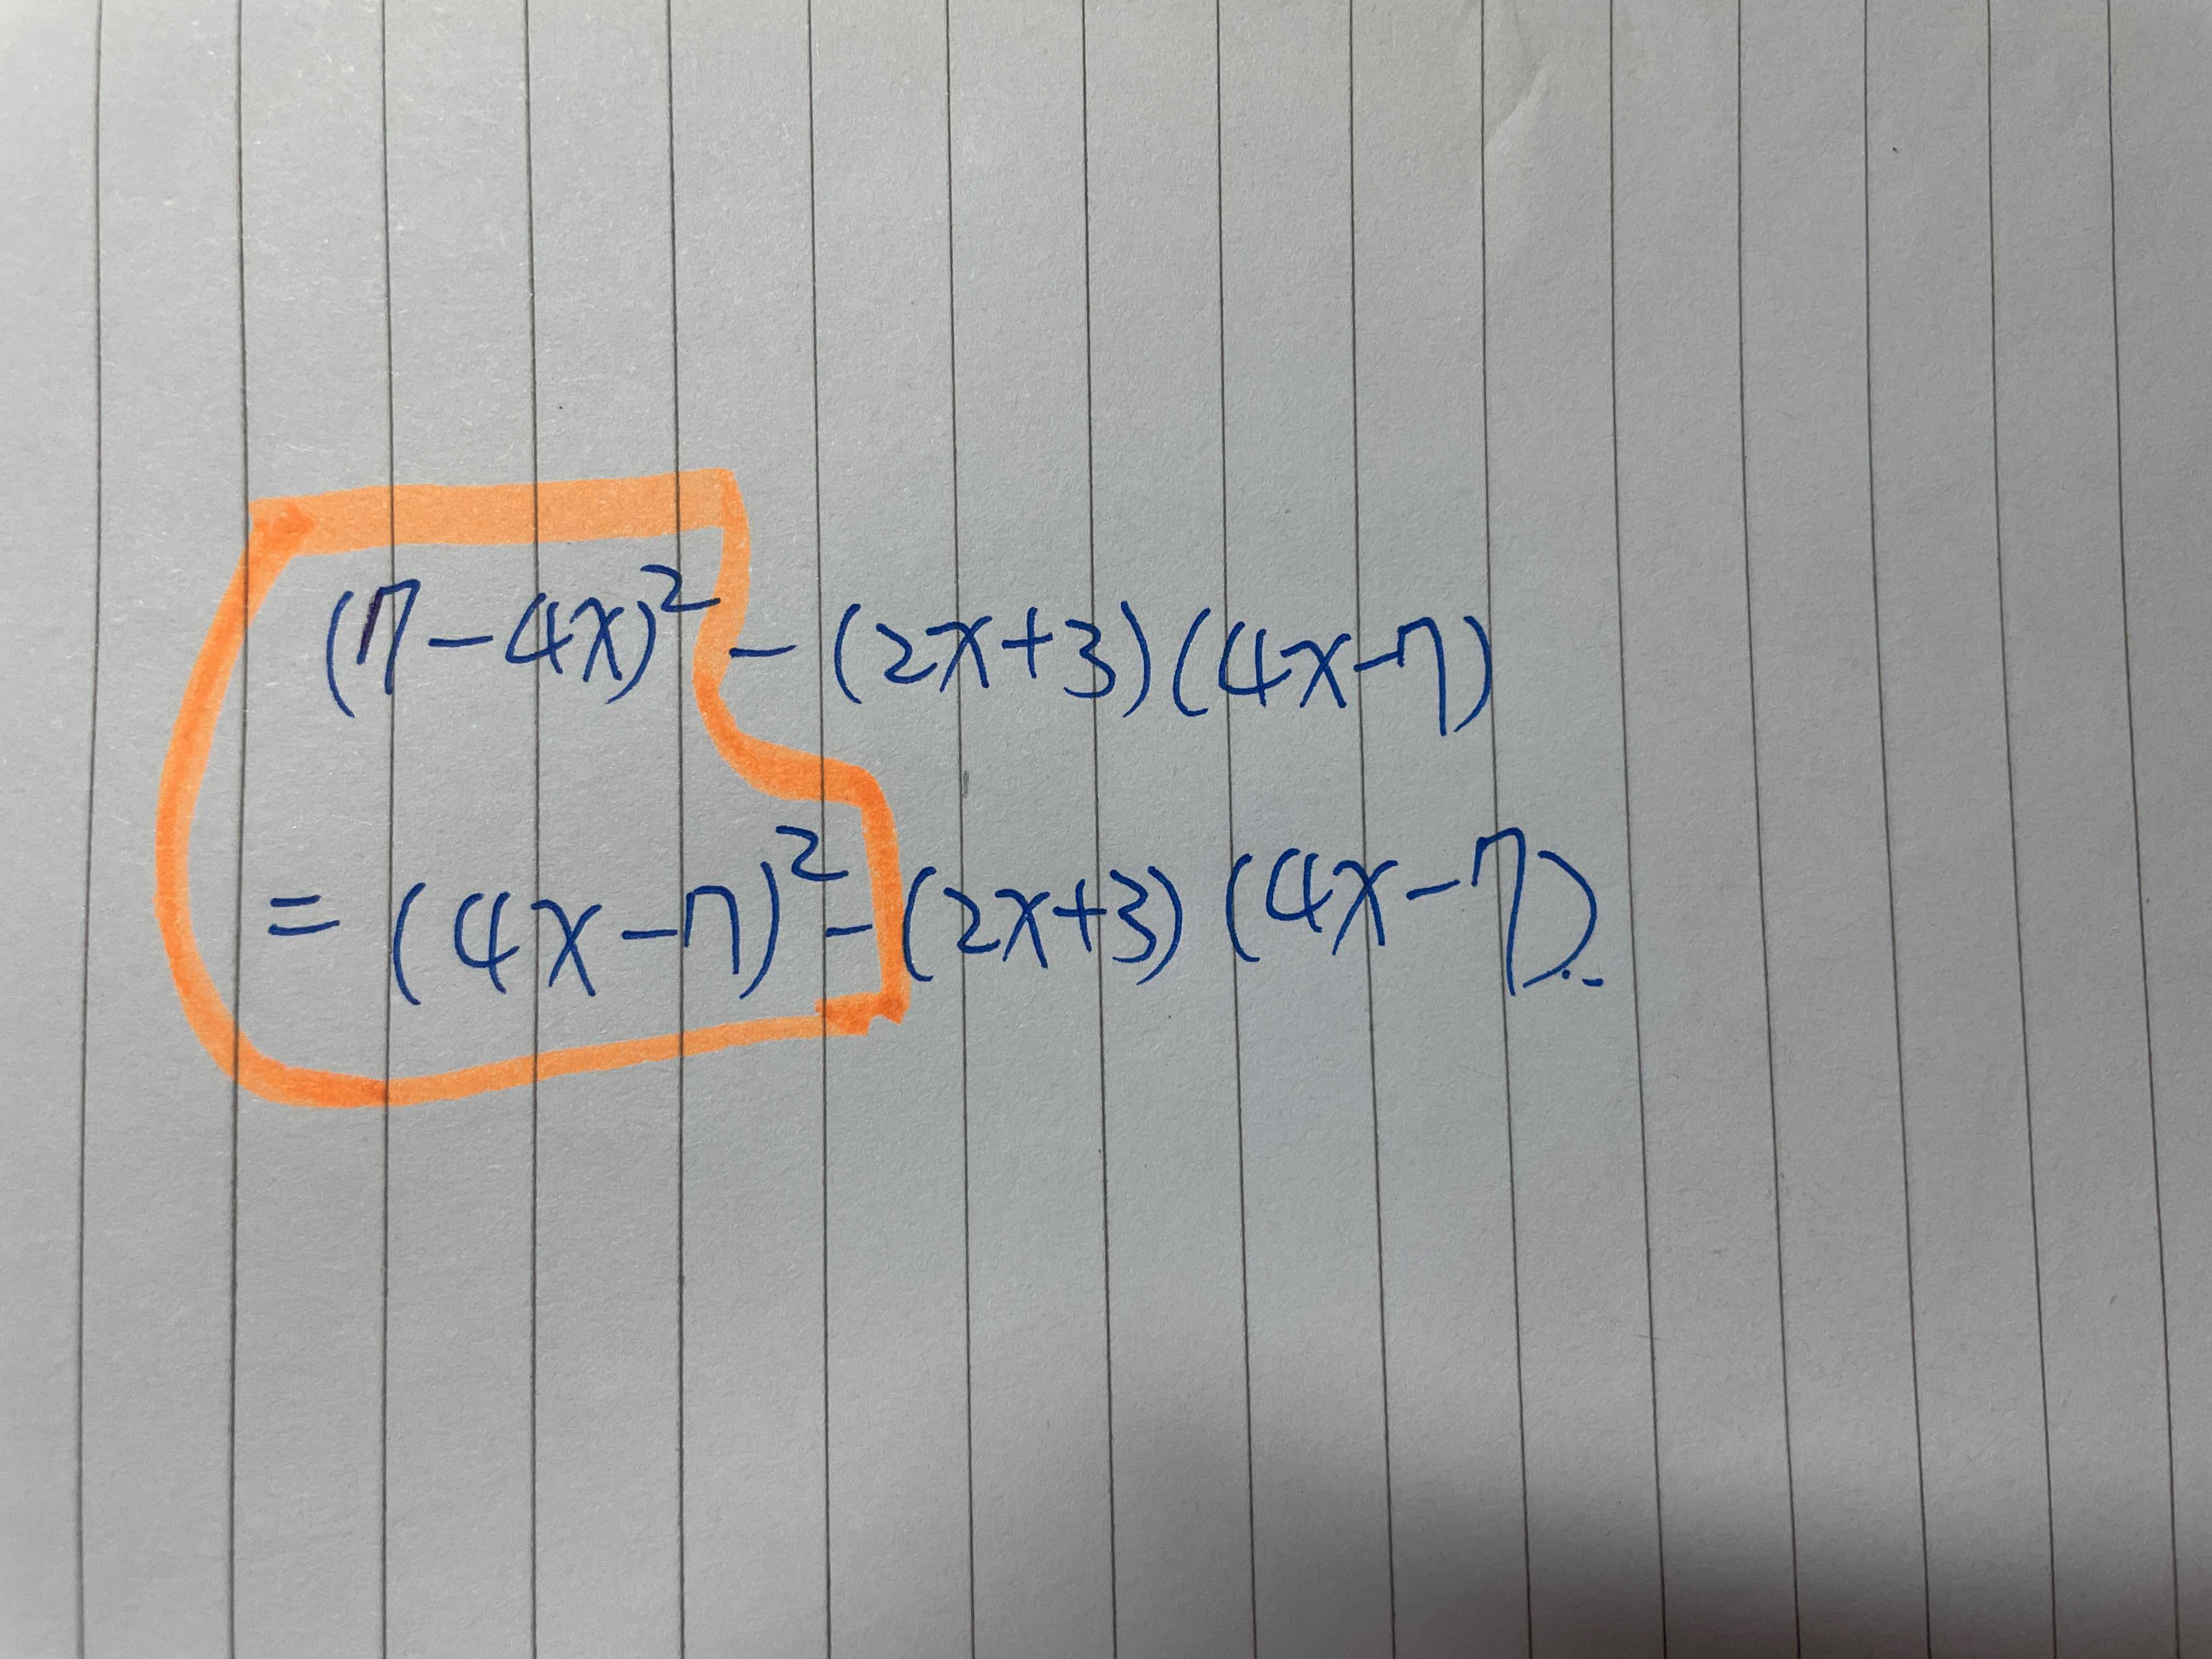 (7-4x)² - (2x+3)(4x-7)
= (4x-7)² - (2x+3) (4x-7)..